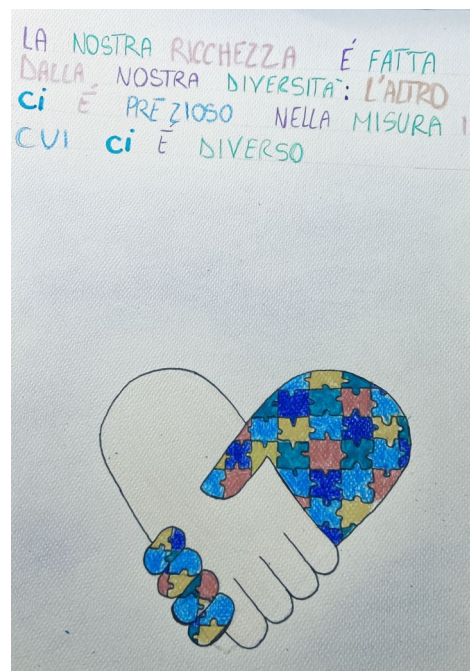 LA NOSTRA RICCHEZZA É FATTA
DALLA NOSTRA DIVERSITÀ: L'ALTRO
Ci É PREZIOSO NELLA MISURA I
CUI Ci È DIVERSO